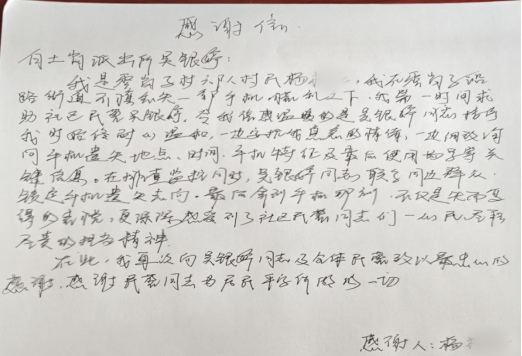 感谢信
白土岗派出所吴银婷:
我是零岗子村六队村民杨 ,我不零岗子段
路街道不慎丢失一部手机,情急之下,我第一时间求
助社区民警吴银婷。令我倍感温暖的是吴银婷同志接待
我时始终耐心温和,一边安抚我焦急的情绪,一边细致询
问手机遗失地点、时间、手机特征及最后使用的等关
键信息。在排查监控同时,吴银婷同志联系了周边群众,
锁定手机遗失去向。最后拿到手机那刻,不仅是失而复
得的喜悦,更深深感受到了社区民警同志们一心为民、尽职
尽责的担当精神。
在此,我再次向吴银婷同志及全体民警致以最衷心的
感谢,感谢民警同志为居民平安所做的一切
感谢人:杨